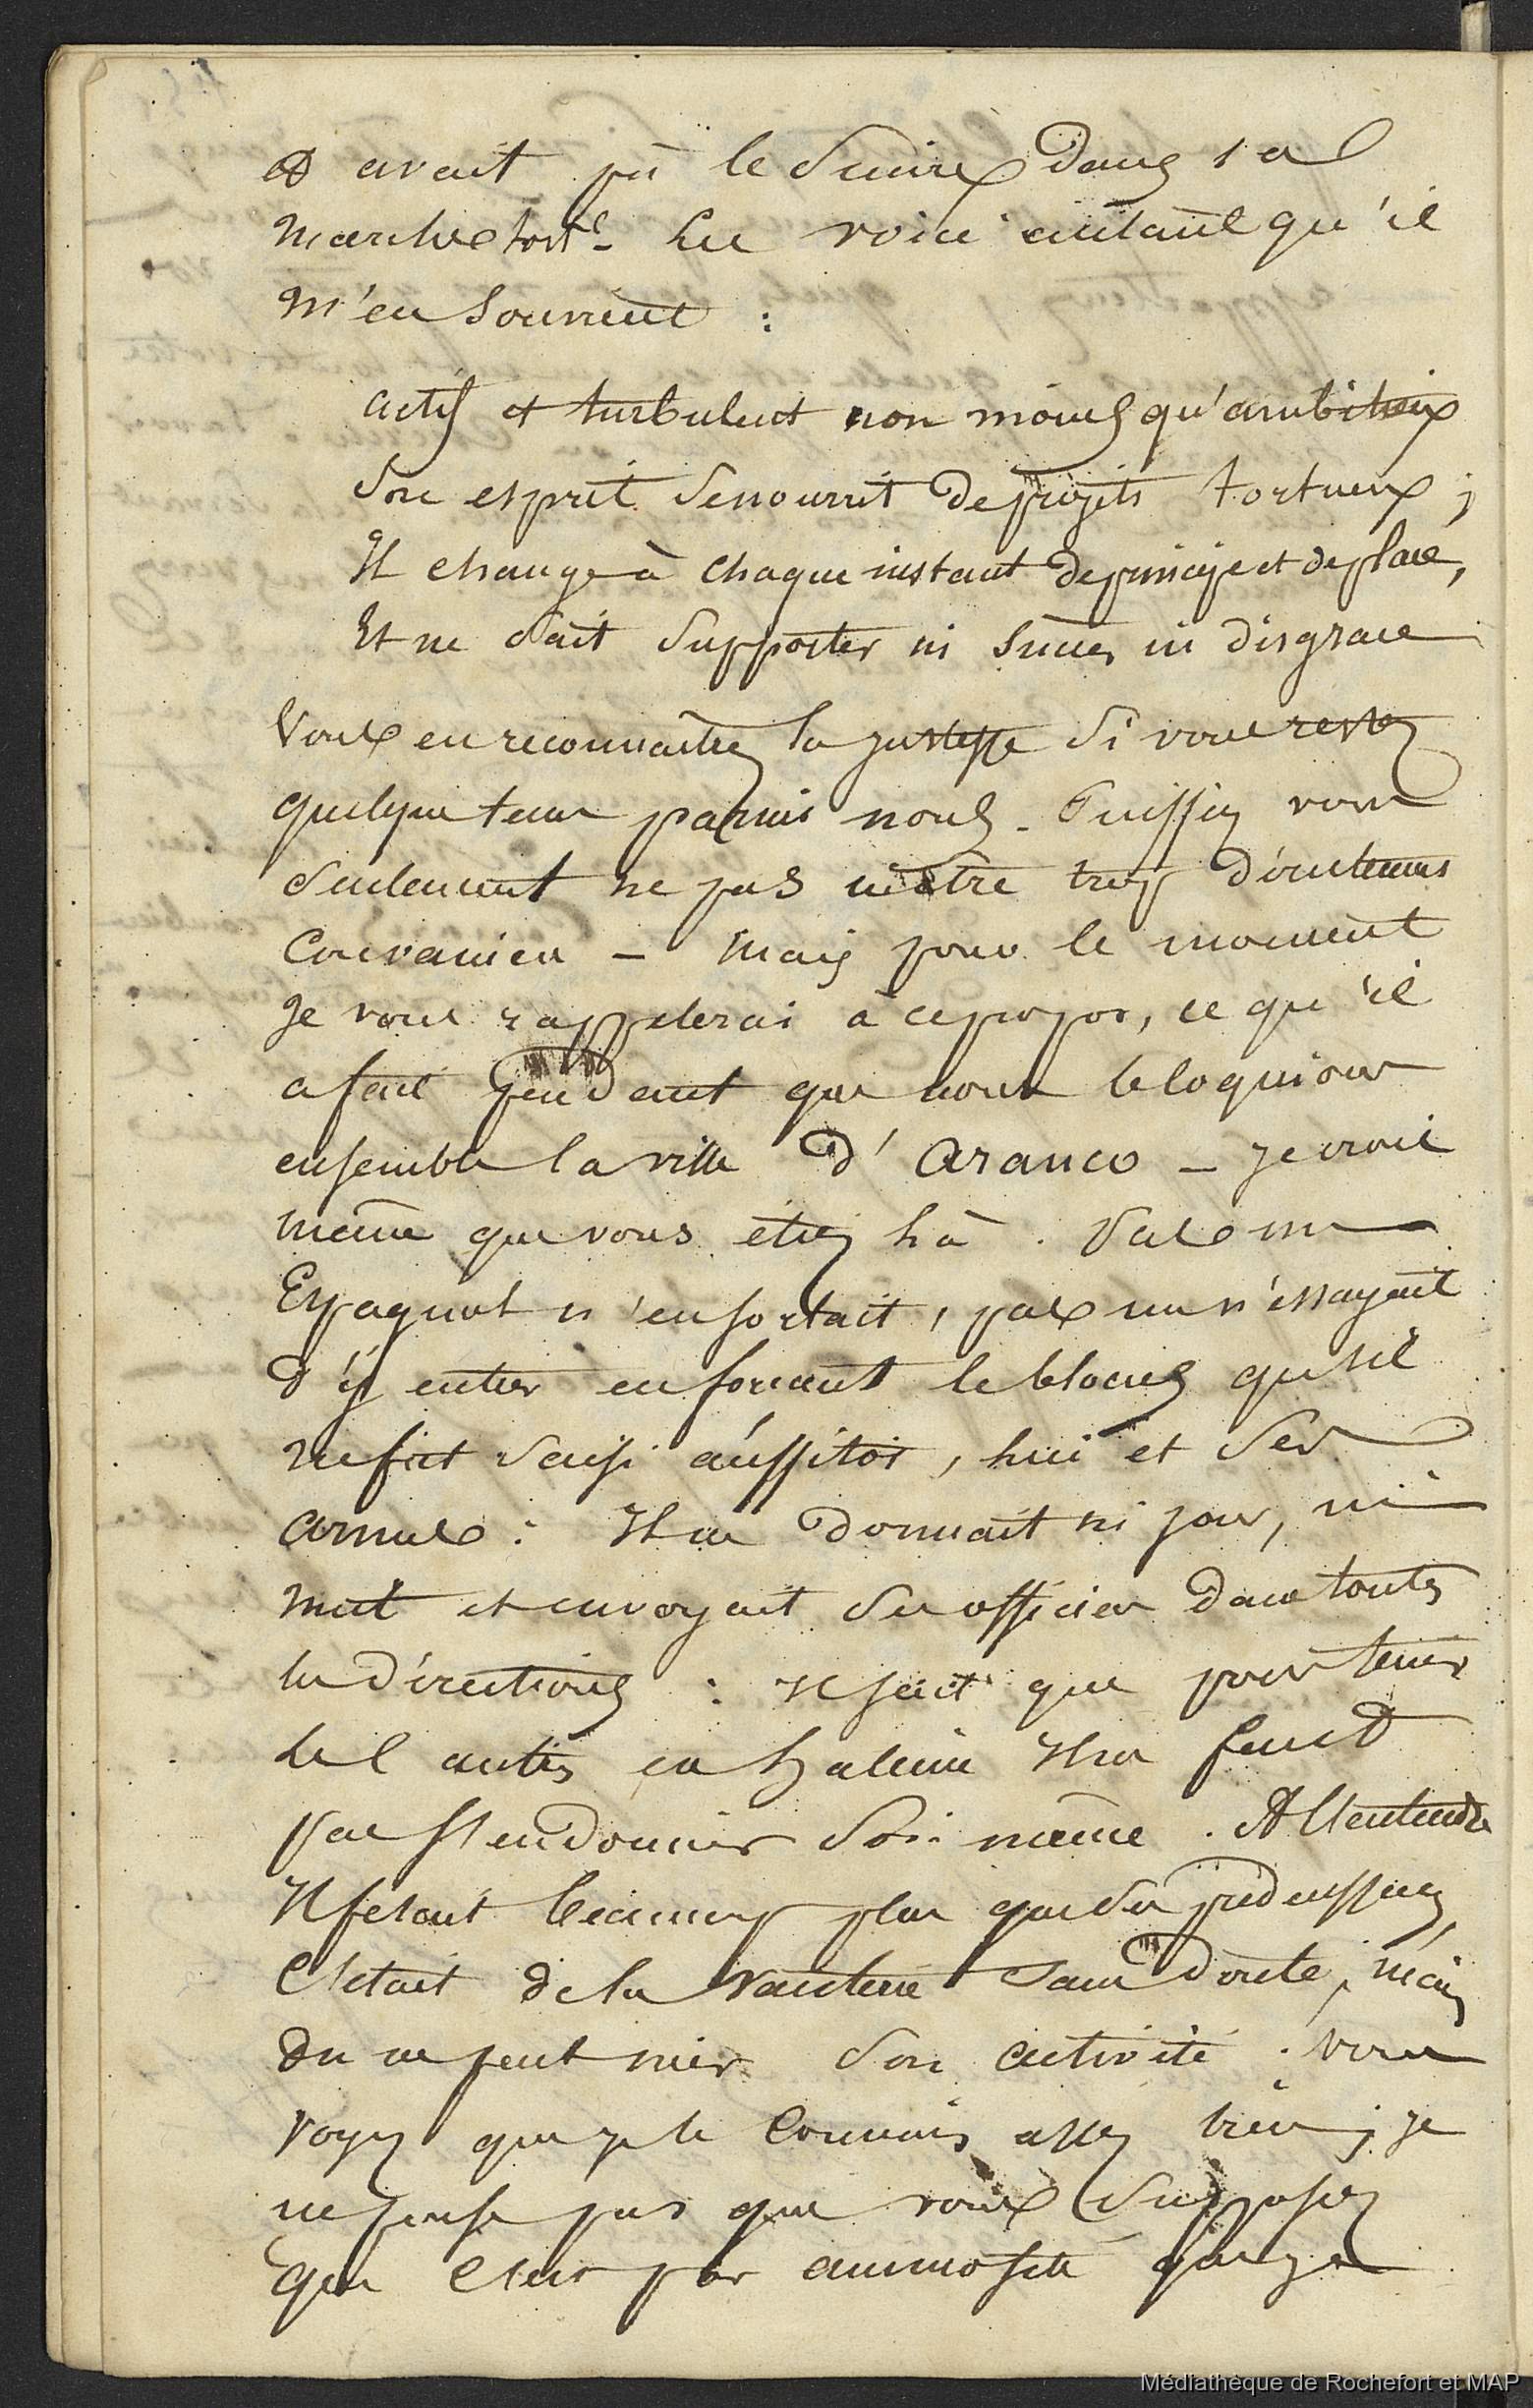 et avait pû le suivre dans sa
marche tort. Le voici autant qu'il
m'en souvient :
actif et turbulent non moins qu'ambitieux
son esprit se nourrit de projets tortueux ;
Il change à chaque instant de principe et de place,
Et ne sait supporter ni succès ni disgrace
Vous en reconnaitrez la justesse si vous restez
quelque tems parmis nous. Puissiez vous
seulement ne pas être trop
convaincu – Mais pour le moment
Je vous rappelerai à ce propos, ce qu'il
a fait pendant que nous bloquions
ensemble la ville d'Arauco – Je crois
même que vous étiez là. Pas un
Espagnol n'en sortait, pas un n'essayait
d'y entrer en forçant le blocus qu'il
ne fut saisi aussitôt, lui et ses
armes : Il ne dormait ni jour, ni
nuit et envoyait ses officiers dans toutes
les directions : Il sait que pour tenir
les autres en haleine il ne faut
pas s'endormir soi même. A l'entendre
Il fesait beaucoup plus que ses prédecesseurs
C'était de la vanterie sans doute, mais
on ne peut nier son activité. Vous
voyez que je le connais assez bien ; je
ne pense pas que vous supposiez
que c'est par animosité que je
Médiathèque de Rochefort et MAP